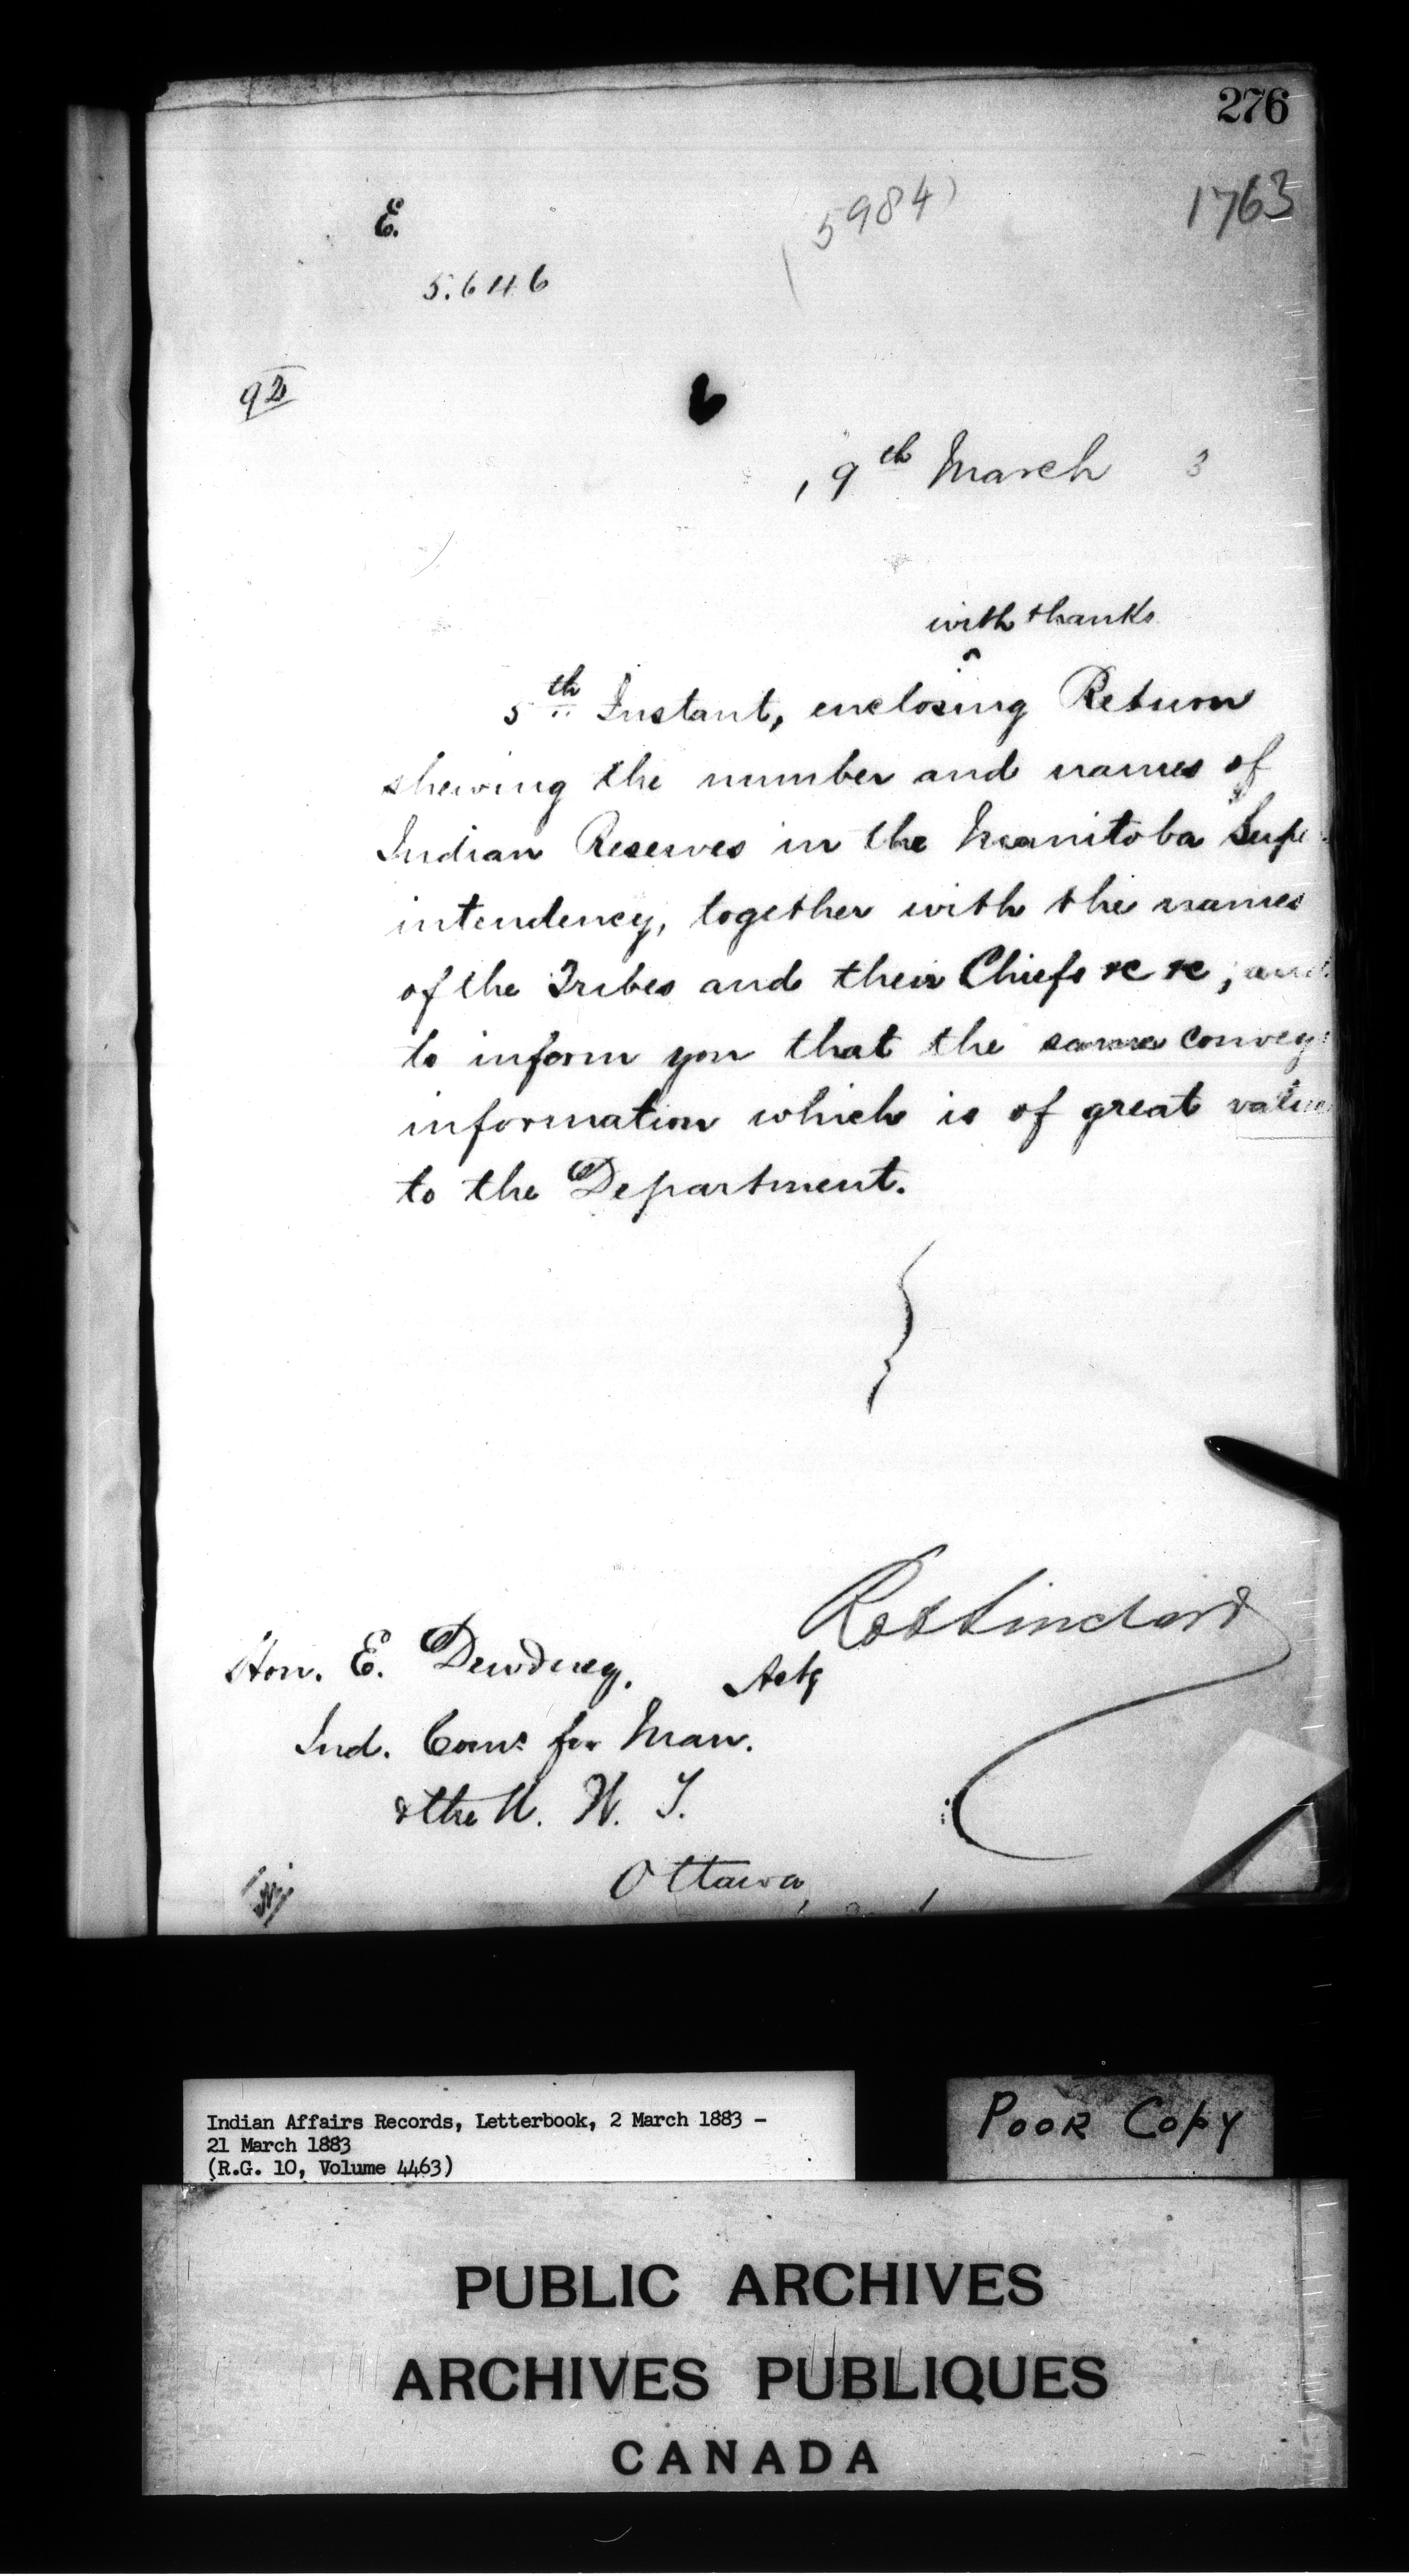 276
1763
(5984)
E.
5.646
92
9th March 3
with thanks
5th Instant, enclosing Return
shewing the number and names of
Indian Reserves in the Manitoba Supe
intendency, together with the names
of the Tribes and their Chiefs &c &c, and
to inform you that the same convey
information which is of great value
to the Department.
Rob Sinclair
Hon. E. Dewdney. Actg
Ind. Comr for Man.
& the N. W. T.
Ottawa
Indian Affairs Records, Letterbook, 2 March 1883 –
21 March 1883
(R.G. 10, Volume 4463)
Poor Copy
PUBLIC ARCHIVES
ARCHIVES PUBLIQUES
CANADA